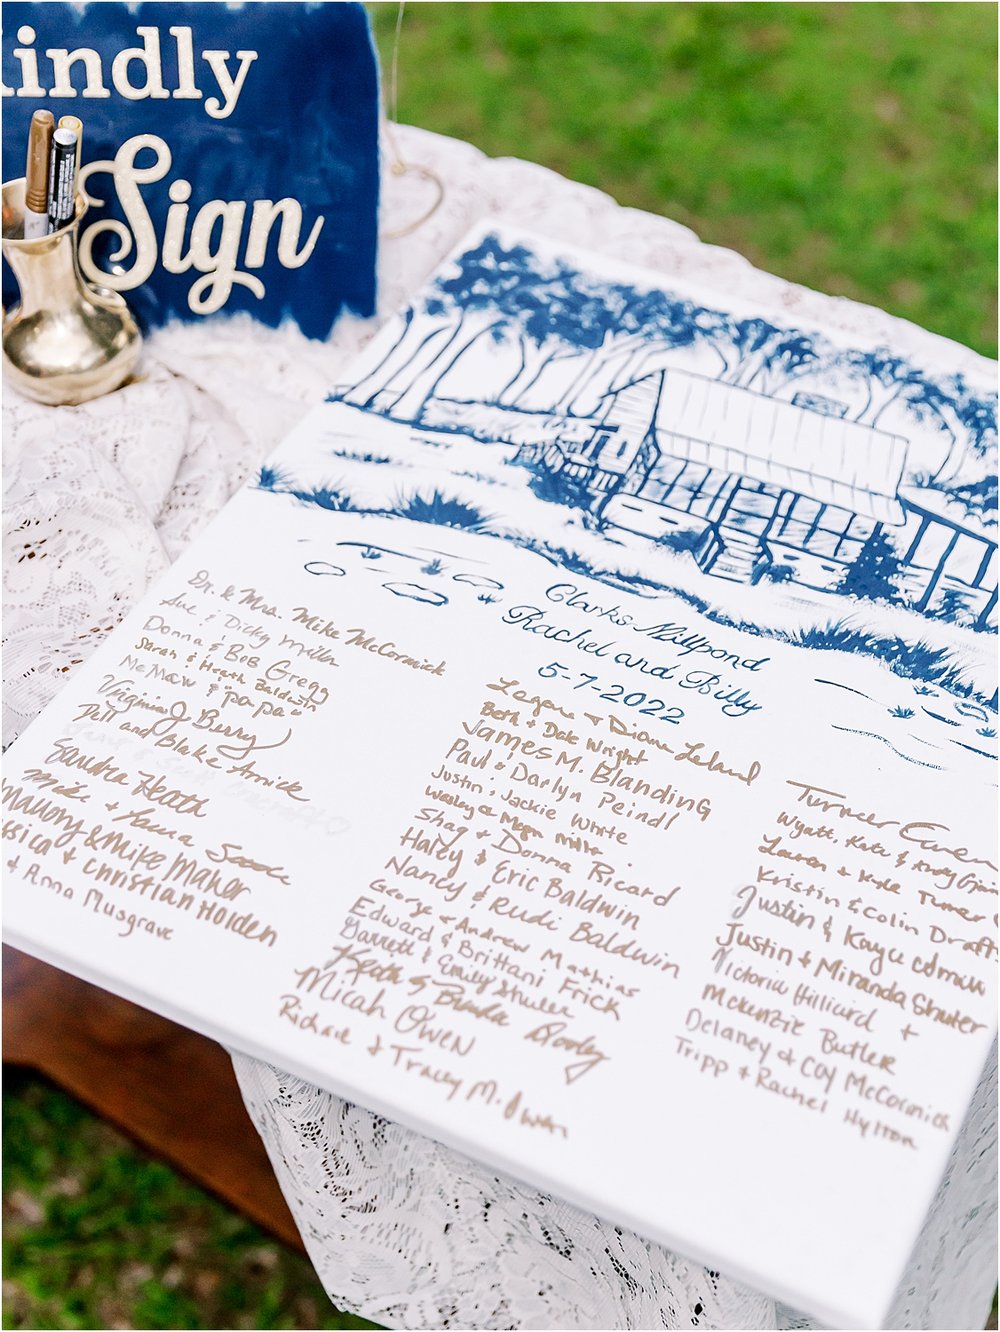 indly
Sign
Clarks Millpond
Rachel and Billy
5-7-2022
Dr. & Mrs. Mike McCormick
Sue & Dicky Miller
Donna & Bob Gregg
Sarah & Heath Baldwin
MeMaw & papa
Virginia J Berry
Dell and Blake Amick
Sandra Heath
Mike + Laura
Mallory & Mike Maher
sica + Christian Holden
+ Anna Musgrave
Legene + Diane Leland
Beth & Dale Wright
James M. Blanding
Paul & Darlyn Peindl
Justin & Jackie White
Wesley & Megan Miller
Shag + Donna Ricard
Haley & Eric Baldwin
Nancy & Rudi Baldwin
George & Andrew Mathias
Edward & Brittani Frick
Garrett & Emily Shuler
Keith &
Micah Owen
Richard & Tracey M. Owen
Turner
Wyatt, Kate &
Lauren + Kyle Turner
Kristin & Colin Draft
Justin & Kayce edmun
Justin + Miranda Shuler
Victoria Hilliard +
McKenzie Butler
Delaney & COY McCormick
Tripp & Rachel Hylton